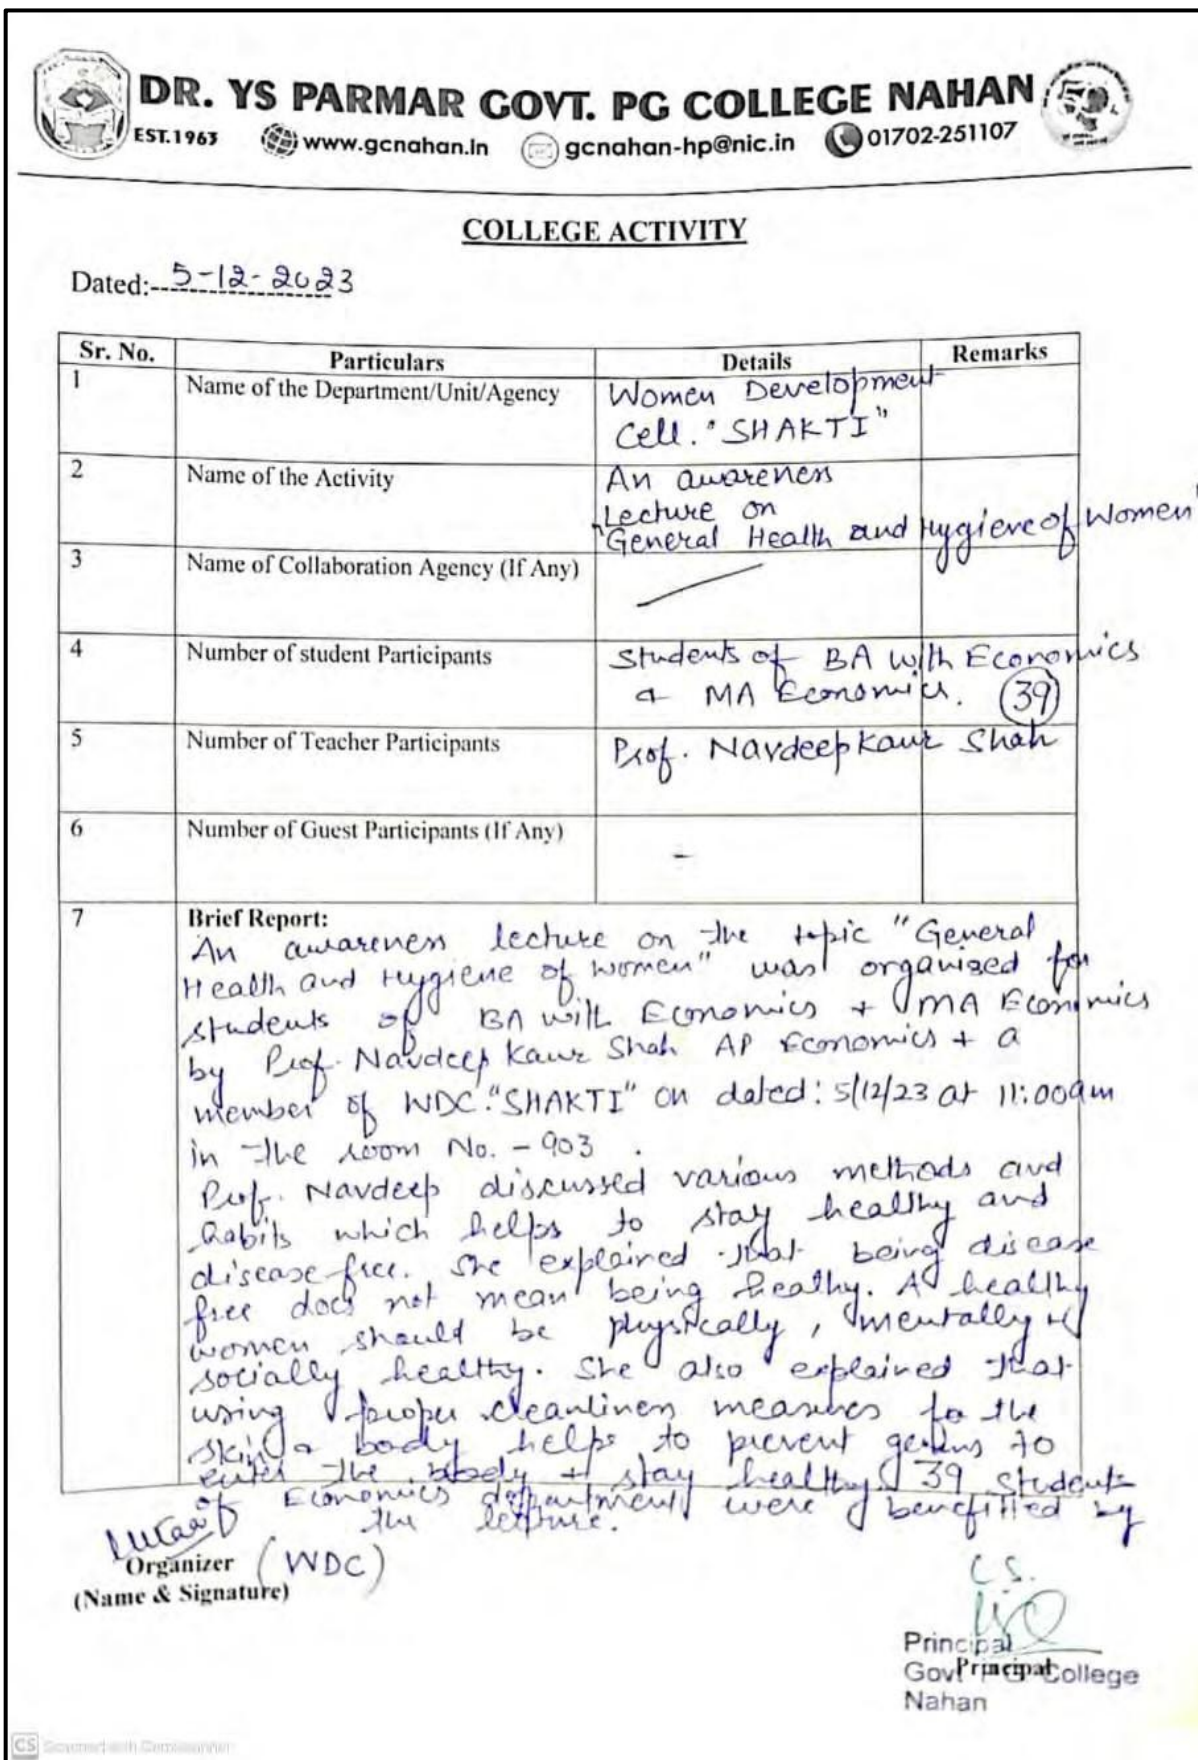 DR. YS PARMAR GOVT. PG COLLEGE NAHAN
EST.1963 www.gcnahan.in gcnahan-hp@nic.in 01702-251107
COLLEGE ACTIVITY
Dated:- 5-12-2023
Sr. No. Particulars Details Remarks
1 Name of the Department/Unit/Agency Women Development
Cell. "SHAKTI"
2 Name of the Activity An awareness
Lecture on
"General Health and Hygiene of Women"
3 Name of Collaboration Agency (If Any)
4 Number of student Participants Students of BA with Economics
& MA Economics. 39
5 Number of Teacher Participants Prof. Navdeep Kaur Shah
6 Number of Guest Participants (If Any) -
7 Brief Report:
An awareness lecture on the topic "General
Health and Hygiene of women" was organised for
students of BA with Economics + MA Economics
by Prof. Navdeep Kaur Shah AP Economics + a
member of WDC "SHAKTI" on dated: 5/12/23 at 11:00am
in the room No. - 903 .
Prof. Navdeep discussed various methods and
habits which helps to stay healthy and
disease free. She explained that being disease
free does not mean being healthy. A healthy
women should be physically, mentally &
socially healthy. She also explained that
using proper cleanliness measures for the
skin & body helps to prevent germs to
enter the body + stay healthy. 39 students
of Economics department were benefitted by
the lecture.
Organizer (WDC)
(Name & Signature)
C S.
Principal
Principal
Govt PG College
Nahan
CS Scanned with CamScanner